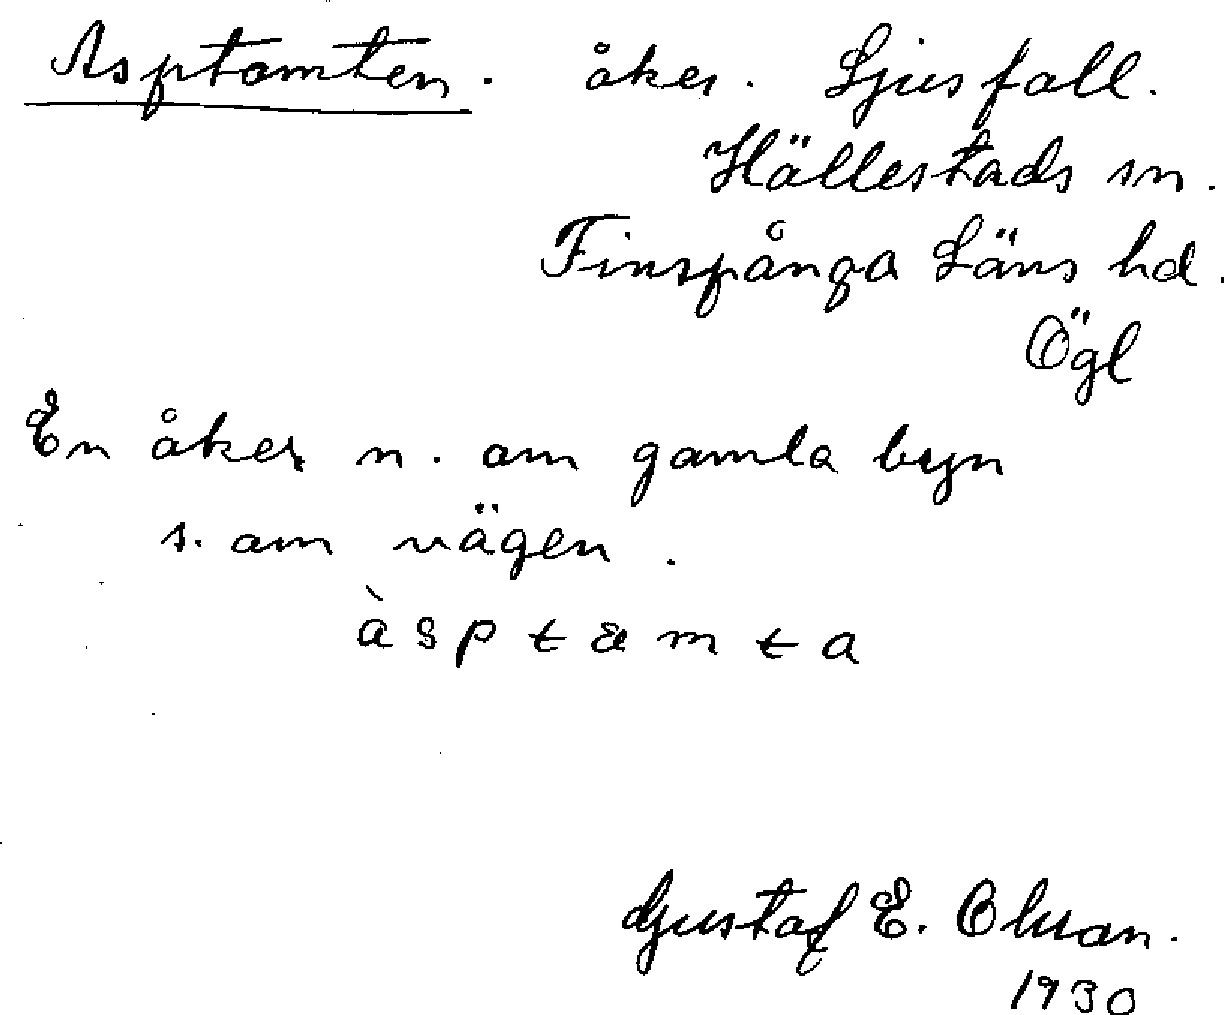 Asptomten. åker. Ljusfall.
Hällestads sn.
Finspånga Läns hd.
Ögl
En åker n. om gamla byn
s. om vägen.
àsptæmta
Gustaf E. Olsson.
1930